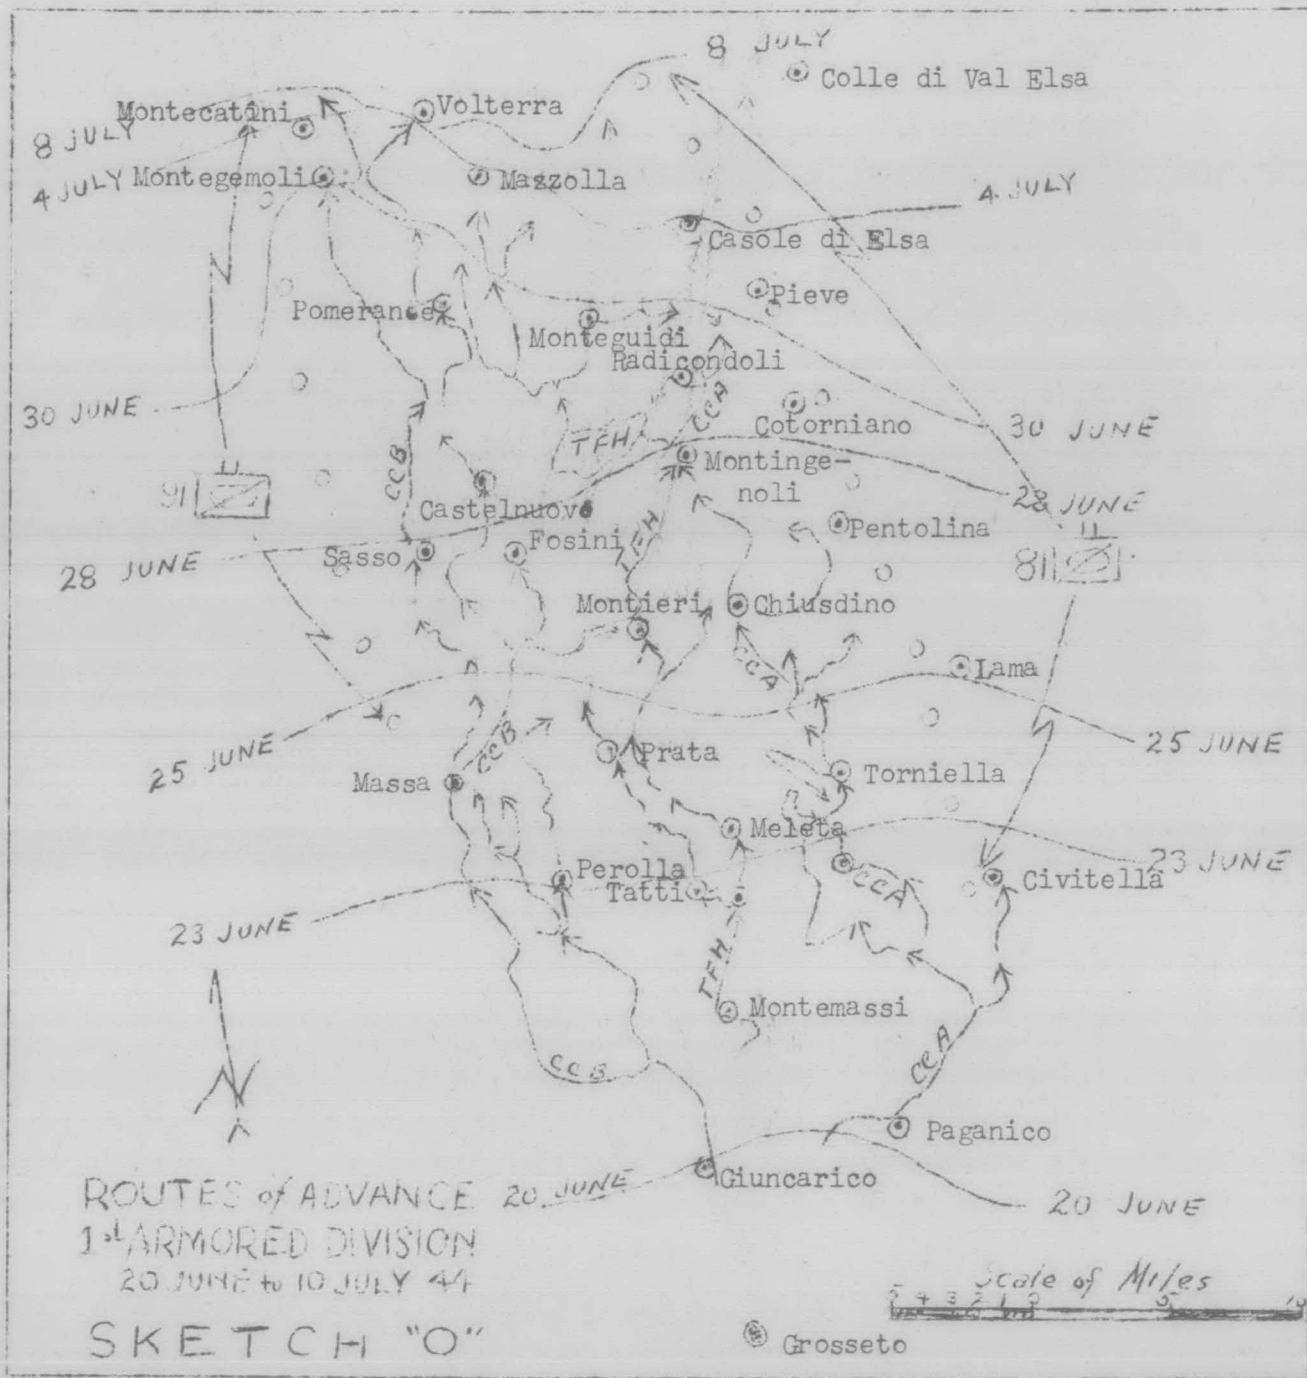 8 JULY
Colle di Val Elsa
Montecatini
Volterra
8 JULY
4 JULY
Montegemoli
Mazzolla
4 JULY
Casole di Elsa
Pieve
Pomerance
Monteguidi
Radicondoli
CCA
30 JUNE
Cotorniano
30 JUNE
TFH
CCB
Montinge-
noli
91
28 JUNE
Castelnuovo
Pentolina
Fosini
TFH
Sasso
28 JUNE
81
Montieri
Chiusdino
CCA
Lama
25 JUNE
CCB
Prata
25 JUNE
Massa
Torniella
Meleta
23 JUNE
Perolla
CCA
Civitella
Tatti
23 JUNE
TFH
Montemassi
CCB
CCA
Paganico
Giuncarico
20 JUNE
20 JUNE
ROUTES of ADVANCE
1st ARMORED DIVISION
20 JUNE to 10 JULY 44
SKETCH "O"
Scale of Miles
5 4 3 2 1 0 5 10
Grosseto